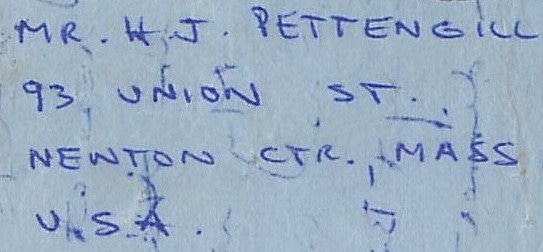 MR. H.J. PETTENGILL
93, UNION ST.
NEWTON CTR., MASS
U.S.A.